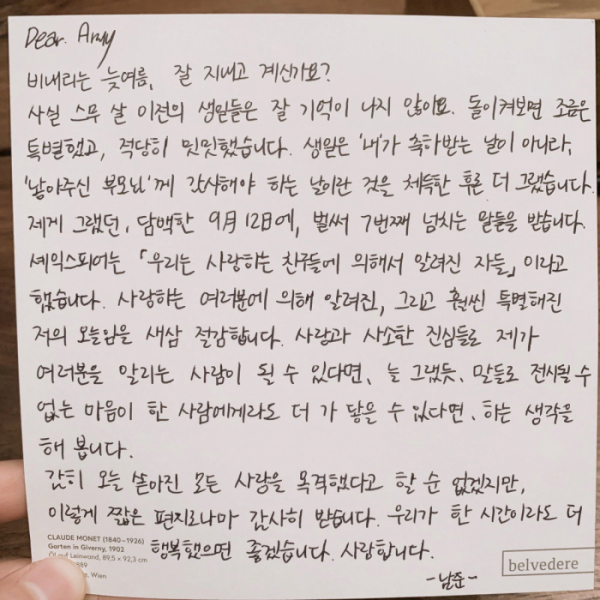 Dear. Army
비내리는 늦여름, 잘 지내고 계신가요?
사실 스무 살 이전의 생일들은 잘 기억이 나지 않아요. 돌이켜보면 조금은
특별했고, 적당히 밋밋했습니다. 생일은 '내'가 축하받는 날이 아니라,
'낳아주신 부모님'께 감사해야 하는 날이란 것을 체득한 후론 더 그랬습니다.
제게 그랬던, 담백한 9月 12日에, 벌써 7번째 넘치는 말들을 받습니다.
셰익스피어는 「우리는 사랑하는 친구들에 의해서 알려진 자들」 이라고
했습니다. 사랑하는 여러분에 의해 알려진, 그리고 훨씬 특별해진
저의 오늘임을 새삼 절감합니다. 사랑과 사소한 진심들로 제가
여러분을 알리는 사람이 될 수 있다면, 늘 그랬듯, 말들로 전시될 수
없는 마음이 한 사람에게라도 더 가 닿을 수 있다면, 하는 생각을
해 봅니다.
감히 오늘 쏟아진 모든 사랑을 목격했다고 할 순 없겠지만,
이렇게 짧은 편지로나마 감사히 받습니다. 우리가 한 시간이라도 더
행복했으면 좋겠습니다. 사랑합니다.
-남준-
CLAUDE MONET (1840–1926)
Garten in Giverny, 1902
Öl auf Leinwand, 89,5 x 92,3 cm
Wien
belvedere